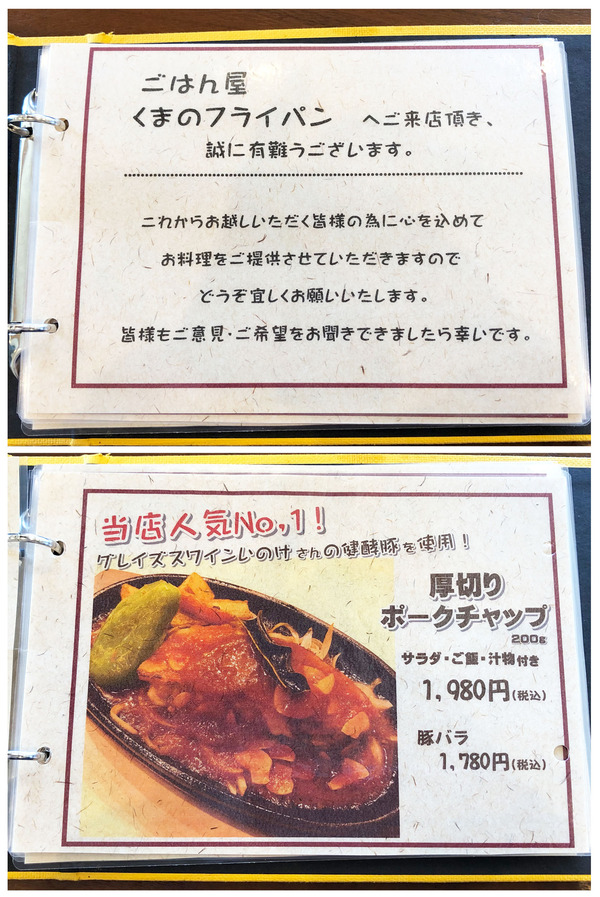 ごはん屋
くまのフライパン へご来店頂き、
誠に有難うございます。
これからお越しいただく皆様の為に心を込めて
お料理をご提供させていただきますので
どうぞ宜しくお願いいたします。
皆様もご意見・ご希望をお聞きできましたら幸いです。
当店人気No,1!
グレイズスワインいのけさんの健酵豚を使用!
厚切り
ポークチャップ
200g
サラダ・ご飯・汁物付き
1,980円(税込)
豚バラ
1,780円(税込)